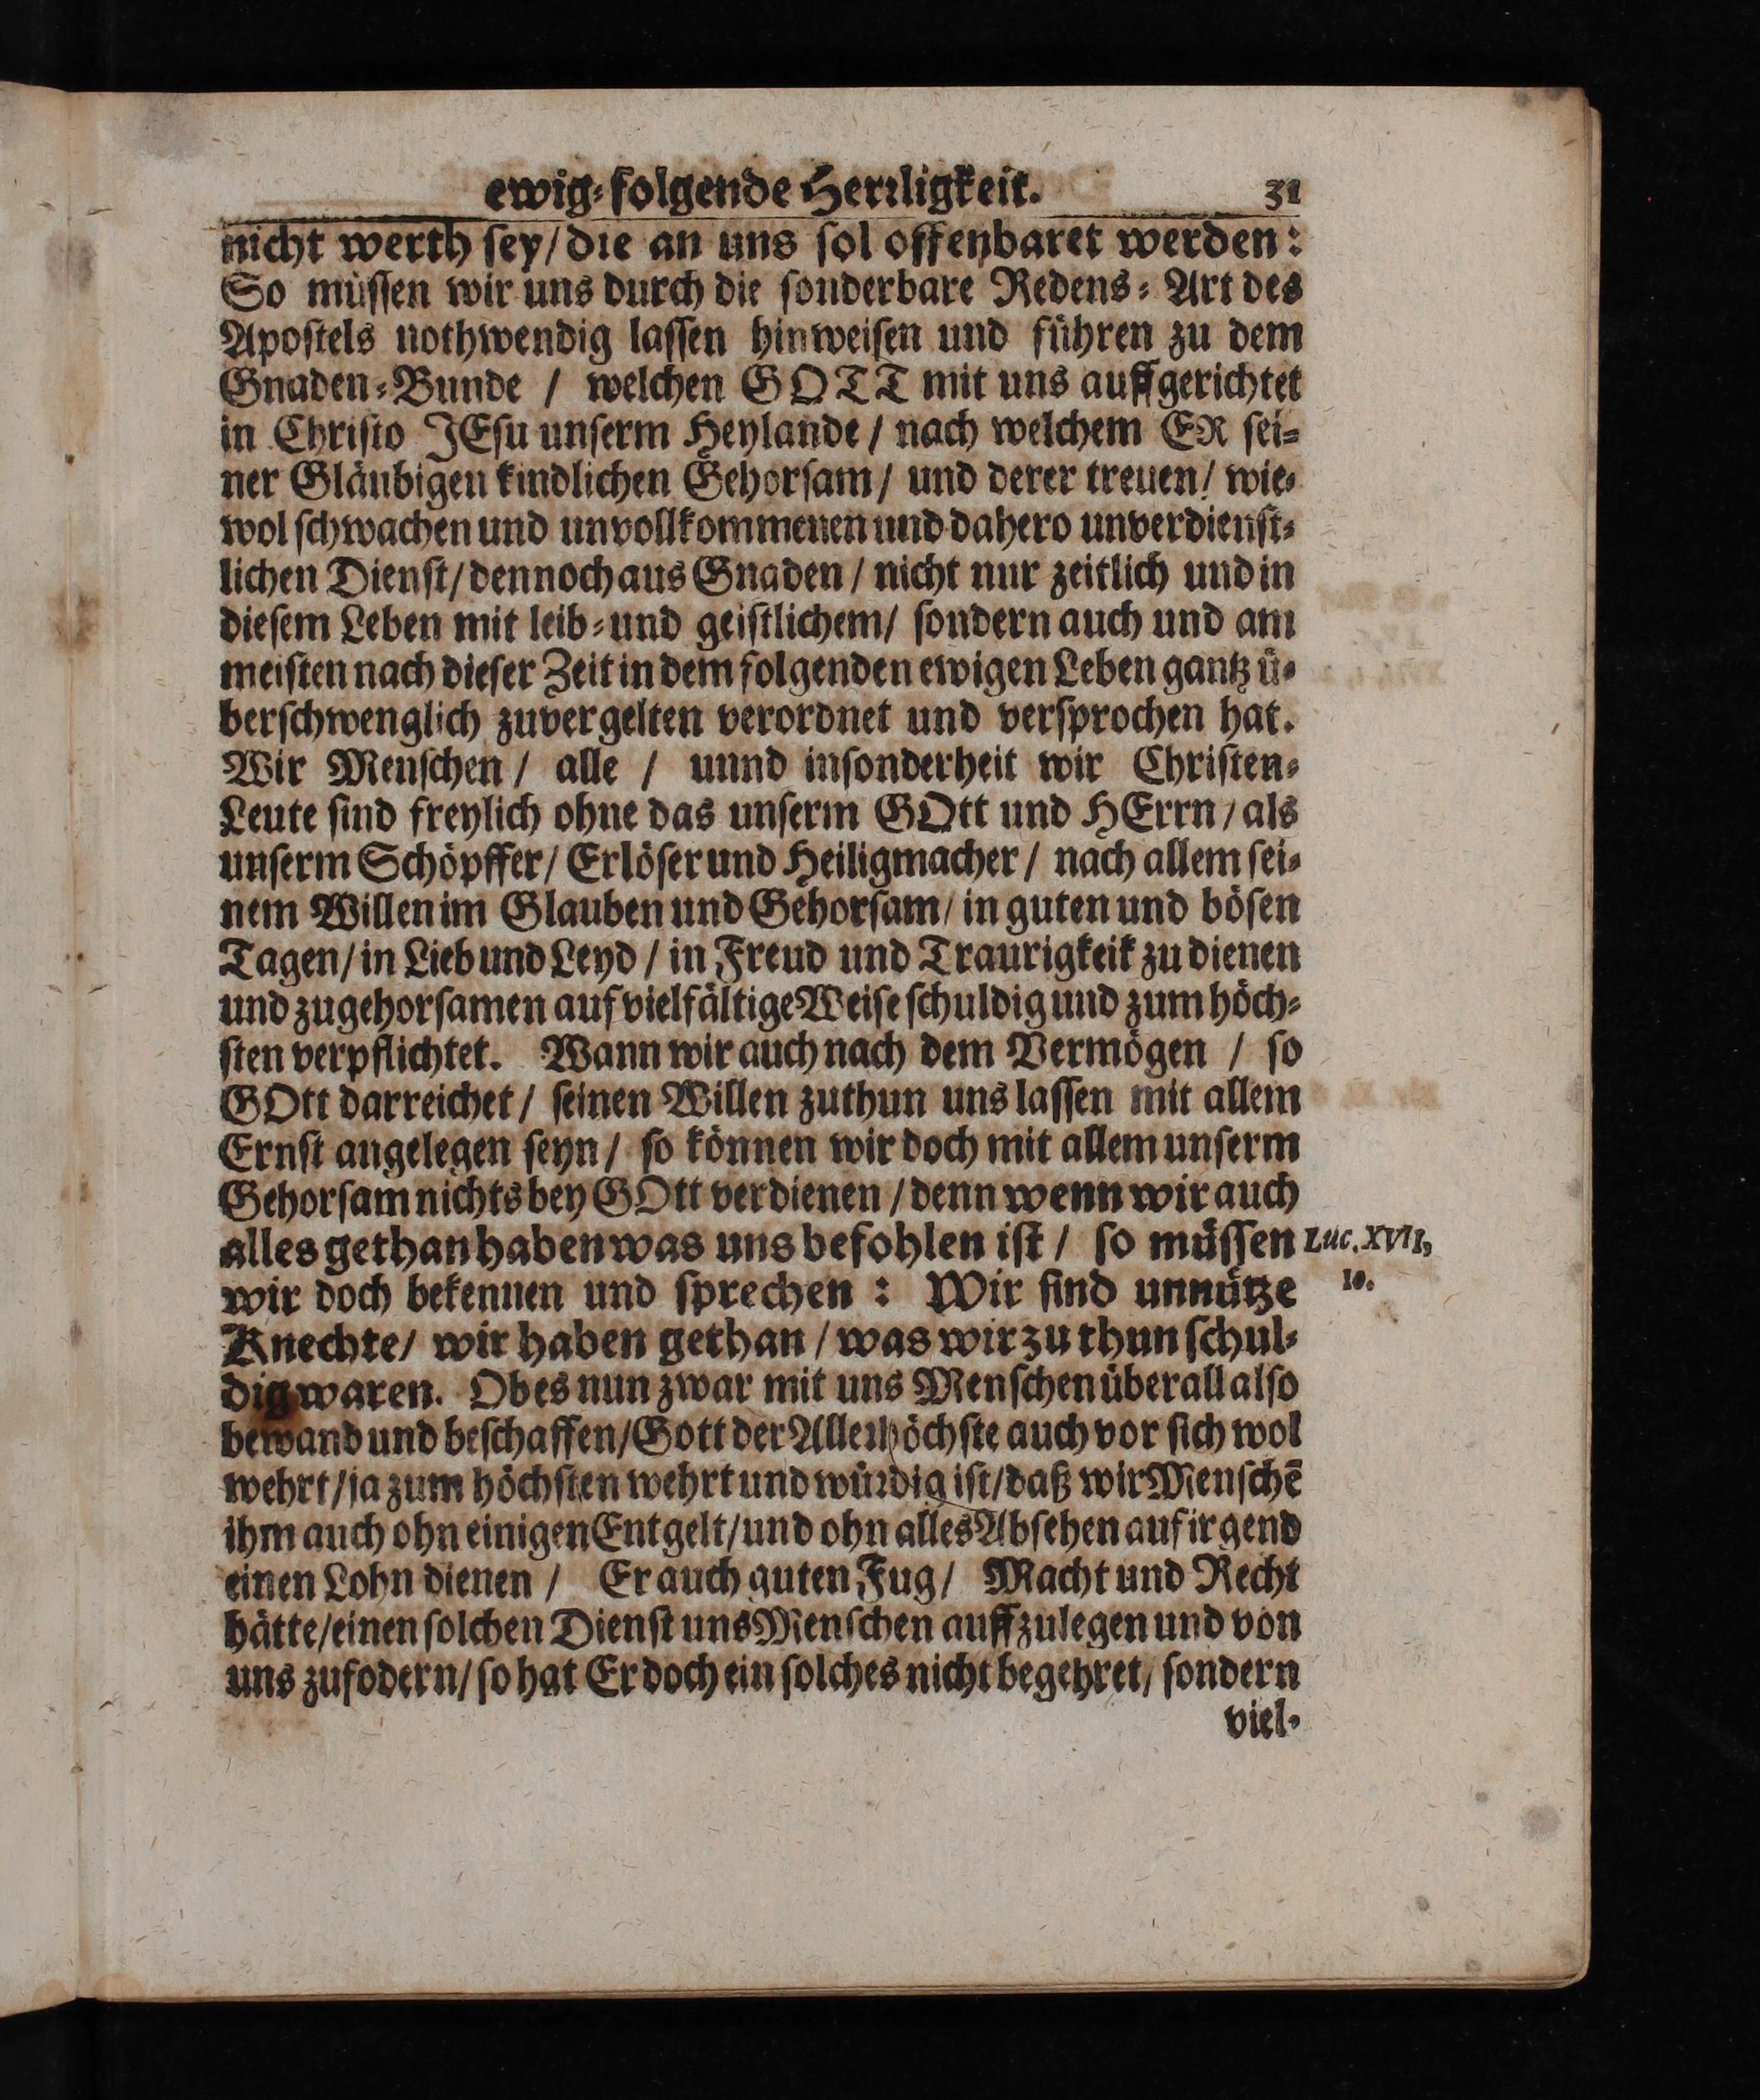 ewig-folgende Herrligkeit. 31
nicht werth sey/ die an uns sol offenbaret werden:
So müssen wir uns durch die sonderbare Redens-Art des
Apostels nothwendig lassen hinweisen und führen zu dem
Gnaden-Bunde / welchen GOTT mit uns auffgerichtet
in Christo JEsu unserm Heylande / nach welchem ER sei-
ner Gläubigen kindlichen Gehorsam / und derer treuen/ wie-
wol schwachen und unvollkommenen und dahero unverdienst-
lichen Dienst/ dennoch aus Gnaden / nicht nur zeitlich und in
diesem Leben mit leib- und geistlichem/ sondern auch und am
meisten nach dieser Zeit in dem folgenden ewigen Leben gantz ü-
berschwenglich zuvergelten verordnet und versprochen hat.
Wir Menschen / alle / unnd insonderheit wir Christen-
Leute sind freylich ohne das unserm GOtt und HErrn / als
unserm Schöpffer/ Erlöser und Heiligmacher / nach allem sei-
nem Willen im Glauben und Gehorsam/ in guten und bösen
Tagen/ in Lieb und Leyd / in Freud und Traurigkeit zu dienen
und zugehorsamen auf vielfältige Weise schuldig und zum höch-
sten verpflichtet. Wann wir auch nach dem Vermögen / so
GOtt darreichet / seinen Willen zuthun uns lassen mit allem
Ernst angelegen seyn / so können wir doch mit allem unserm
Gehorsam nichts bey GOtt verdienen / denn wenn wir auch
alles gethan haben was uns befohlen ist / so müssen Luc. XVII,
wir doch bekennen und sprechen : Wir sind unnütze 10.
Knechte/ wir haben gethan / was wir zu thun schul-
dig waren. Ob es nun zwar mit uns Menschen überall also
bewand und beschaffen/ Gott der Allerhöchste auch vor sich wol
wehrt / ja zum höchsten wehrt und würdig ist/ daß wir Menschē
ihm auch ohn einigen Entgelt/ und ohn alles Absehen auf irgend
einen Lohn dienen / Er auch guten Fug/ Macht und Recht
hätte/ einen solchen Dienst uns Menschen auffzulegen und von
uns zufodern/ so hat Er doch ein solches nicht begehret/ sondern
viel-